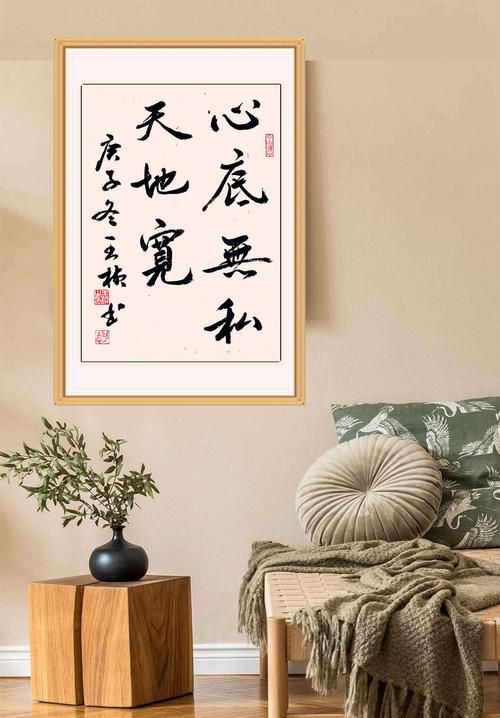 心底無私
天地寬
庚子冬王楨书